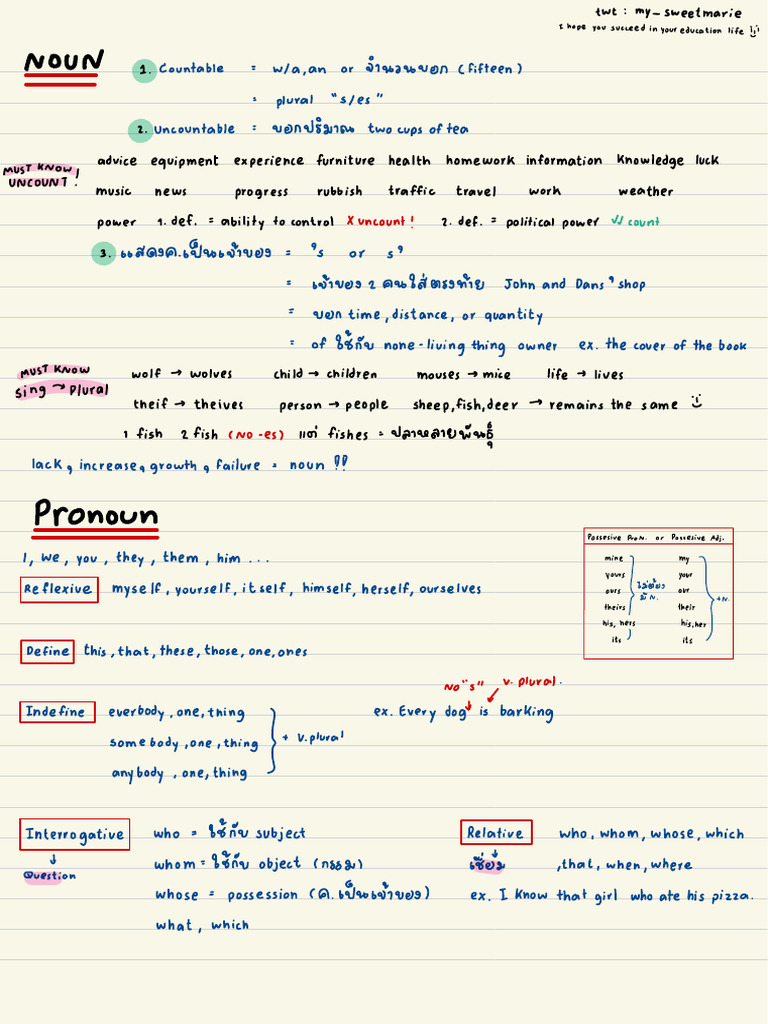 twt : my_sweetmarie
I hope you succeed in your education life
NOUN
1. Countable = w/a,an or จำนวนบอก (fifteen)
= plural "s/es"
2. Uncountable = บอกปริมาณ two cups of tea
MUST KNOW UNCOUNT!
advice equipment experience furniture health homework information Knowledge luck
music news progress rubbish traffic travel work weather
power 1. def. = ability to control X uncount! 2. def. = political power √√ count
3. แสดงค.เป็นเจ้าของ = 's or s'
= เจ้าของ 2 คนใส่ตรงท้าย John and Dans'shop
= บอก time, distance, or quantity
= of ใช้กับ none-living thing owner ex. the cover of the book
MUST KNOW
Sing → Plural
wolf → wolves child → children mouses → mice life → lives
theif → theives person → people sheep,fish,deer → remains the same
1 fish 2 fish (NO -es) แต่ fishes = ปลาหลายพันธุ์
lack, increase, growth, failure = noun !!
Pronoun
I, we, you, they, them, him ...
Reflexive myself, yourself, itself, himself, herself, ourselves
Possesive ProN. or Possesive Adj.
mine my
yours your
ours our
theirs their
his, hers his, her
its its
ไม่ต้องมี N.
+N.
Define this, that, these, those, one, ones
Indefine everbody, one, thing
somebody, one, thing
anybody, one, thing
+ v.plural
No "s" v. plural.
ex. Every dog is barking
Interrogative
↓
Question
who = ใช้กับ subject
whom = ใช้กับ object (กรรม)
whose = possession (ค.เป็นเจ้าของ)
what, which
Relative who, whom, whose, which
↓
เชื่อม ,that, when, where
ex. I know that girl who ate his pizza.